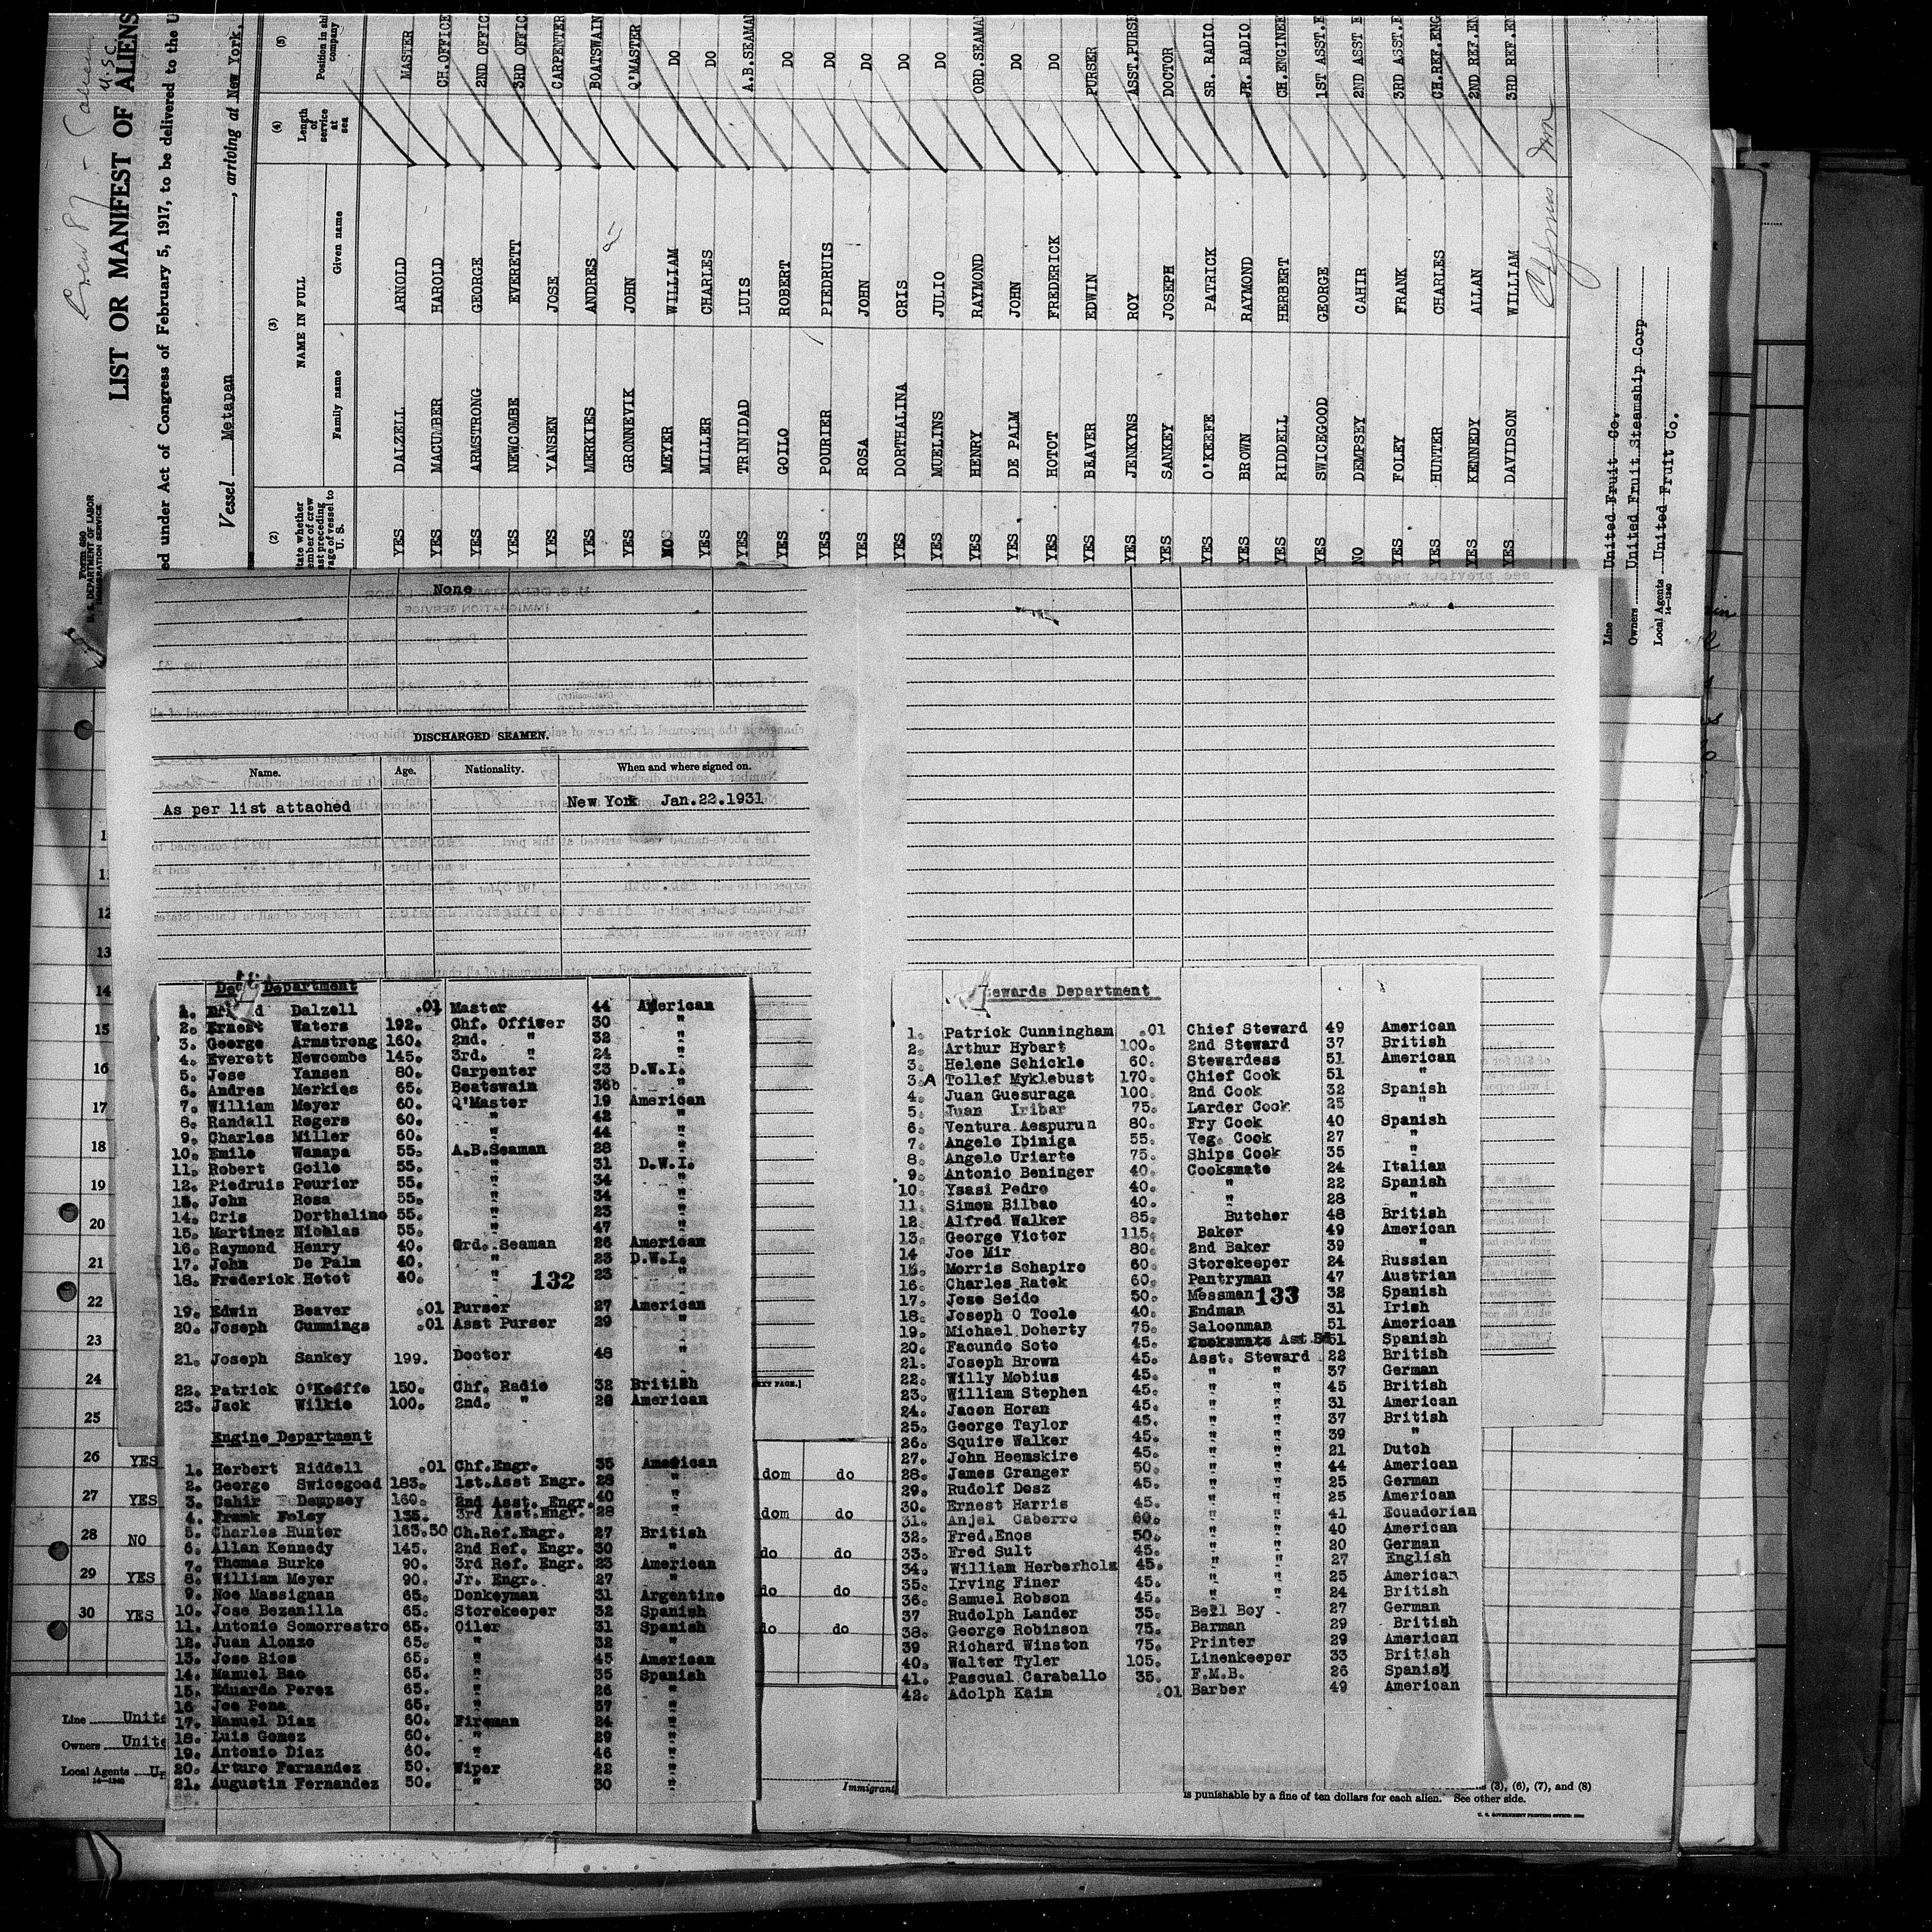 Crew 87 -
U.S.C.
LIST OR MANIFEST OF ALIENS
ed under Act of Congress of February 5, 1917, to be delivered to the U
Vessel Metapan, arriving at New York,
Form 680
U. S. DEPARTMENT OF LABOR
IMMIGRATION SERVICE
(2) (3) (4) (5)
NAME IN FULL
Family name Given name Length of service at sea Position in shi company
tate whether ember of crew ast preceding yage of vessel to U. S.
YES DALZELL ARNOLD MASTER
YES MACUMBER HAROLD CH.OFFICE
YES ARMSTRONG GEORGE 2ND OFFIC
YES NEWCOMBE EVERETT 3RD OFFIC
YES YANSEN JOSE CARPENTER
YES MERKIES ANDRES BOATSWAIN
YES GRONNEVIK JOHN Q'MASTER
NO MEYER WILLIAM DO
YES MILLER CHARLES DO
YES TRINIDAD LUIS A.B.SEAMAN
YES GOILO ROBERT DO
YES POURIER PIEDRUIS DO
YES ROSA JOHN DO
YES DORTHALINA CRIS DO
YES MUELINS JULIO DO
YES HENRY RAYMOND ORD.SEAMAN
YES DE PALM JOHN DO
YES HOTOT FREDERICK DO
YES BEAVER EDWIN PURSER
YES JENKYNS ROY ASST.PURSE
YES SANKEY JOSEPH DOCTOR
YES O'KEEFE PATRICK SR. RADIO
YES BROWN RAYMOND JR. RADIO
YES RIDDELL HERBERT CH.ENGINEE
YES SWICEGOOD GEORGE 1ST ASST.E
NO DEMPSEY CAHIR 2ND ASST E
YES FOLEY FRANK 3RD ASST.E
YES HUNTER CHARLES CH.REF.ENG
YES KENNEDY ALLAN 2ND REF.EN
YES DAVIDSON WILLIAM 3RD REF.EN
Line United Fruit Co.
Owners United Fruit Steamship Corp
Local Agents United Fruit Co.
14—1240
None
DISCHARGED SEAMEN.
Name. Age. Nationality. When and where signed on.
As per list attached New York Jan.22.1931
Department
1. Dalzell .01 Master 44 American
2. Ernest Waters 192. Chf. Officer 30 "
3. George Armstrong 160. 2nd. " 32 "
4. Everett Newcombe 145. 3rd. " 24 "
5. Jose Yansen 80. Carpenter 33 D.W.I.
6. Andres Merkies 65. Boatswain 36 "
7. William Meyer 60. Q'Master 19 American
8. Randall Rogers 60. " 42 "
9. Charles Miller 60. " 44 "
10. Emile Wanapa 55. A.B.Seaman 28 "
11. Robert Goilo 55. " 31 D.W.I.
12. Piedruis Pourier 55. " 34 "
13. John Rosa 55. " 34 "
14. Cris Dorthalino 55. " 23 "
15. Martinez Nicolas 55. " 47 "
16. Raymond Henry 40. Ord. Seaman 26 American
17. John De Palm 40. " 23 D.W.I.
18. Frederick Hotot 40. " 23 "
132
19. Edwin Beaver .01 Purser 27 American
20. Joseph Cummings .01 Asst Purser 29 "
21. Joseph Sankey 199. Doctor 48 "
22. Patrick O'Keeffe 150. Chf. Radio 32 British
23. Jack Wilkie 100. 2nd. " 26 American
Engine Department
1. Herbert Riddell .01 Chf.Engr. 35 American
2. George Swicegood 183. 1st.Asst Engr. 28 "
3. Cahir Dempsey 160. 2nd Asst. Engr. 40 "
4. Frank Foley 135. 3rd Asst.Engr. 28 "
5. Charles Hunter 163.50 Ch.Ref.Engr. 27 British
6. Allan Kennedy 145. 2nd Ref. Engr. 30 "
7. Thomas Burke 90. 3rd Ref. Engr. 23 American
8. William Meyer 90. Jr. Engr. 27 "
9. Noe Massignan 65. Donkeyman 31 Argentine
10. Jose Bezanilla 65. Storekeeper 32 Spanish
11. Antonio Somorrestro 65. Oiler 31 Spanish
12. Juan Alonzo 65. " 32 "
13. Jose Rios 65. " 45 American
14. Manuel Bao 65. " 35 Spanish
15. Eduardo Perez 65. " 26 "
16 Joe Pena 65. " 37 "
17. Manuel Diaz 60. Fireman 24 "
18. Luis Gomez 60. " 29 "
19. Antonio Diaz 60. " 46 "
20. Arturo Fernandez 50. Wiper 22 "
21. Augustin Fernandez 50. " 30 "
ewards Department
1. Patrick Cunningham .01 Chief Steward 49 American
2. Arthur Hybart 100. 2nd Steward 37 British
3. Helene Schickle 60. Stewardess 51 American
3.A Tollef Myklebust 170. Chief Cook 51 "
4. Juan Guesuraga 100. 2nd Cook 32 Spanish
5. Juan Iribar 75. Larder Cook 25 "
6. Ventura Aespurun 80. Fry Cook 40 Spanish
7. Angelo Ibiniga 55. Veg. Cook 27 "
8. Angelo Uriarte 75. Ships Cook 35 "
9. Antonio Beninger 40. Cooksmate 24 Italian
10. Ysasi Pedro 40. " 22 Spanish
11. Simon Bilbao 40. " 28 "
12. Alfred Walker 85. Butcher 48 British
13. George Victor 115. Baker 49 American
14 Joe Mir 80. 2nd Baker 39 "
15. Morris Schapiro 60. Storekeeper 24 Russian
16. Charles Ratek 60. Pantryman 47 Austrian
17. Jose Seido 50. Messman 32 Spanish
133
18. Joseph O Toole 40. Endman 31 Irish
19. Michael Doherty 75. Saloonman 51 American
20. Facundo Soto 45. Cooksmate Ast 51 Spanish
21. Joseph Brown 45. Asst. Steward 22 British
22. Willy Mobius 45. " " 37 German
23. William Stephen 45. " " 45 British
24. Jacon Horan 45. " " 31 American
25. George Taylor 45. " " 37 British
26. Squire Walker 45. " " 39 "
27. John Heemskire 45. " " 21 Dutch
28. James Granger 50. " " 44 American
29. Rudolf Desz 45. " " 25 German
30. Ernest Harris 45. " " 25 American
31. Anjel Caberro 60. " " 41 Ecuadorian
32. Fred.Enos 50. " " 40 American
33. Fred Sult 45. " " 20 German
34. William Herberholz 45. " " 27 English
35. Irving Finer 45. " " 25 American
36. Samuel Robson 45. " " 24 British
37 Rudolph Lander 35. Bell Boy 27 German
38. George Robinson 75. Barman 29 British
39 Richard Winston 75. Printer 29 American
40. Walter Tyler 105. Linenkeeper 33 British
41. Pascual Caraballo 35. F.M.B. 26 Spanish
42. Adolph Kaim .01 Barber 49 American
12
13
14
15
16
17
18
19
20
21
22
23
24
25
26 YES dom do
27 YES dom do
28 NO do do
29 YES do do
30 YES do do
EXT PAGE.]
Line Unite
Owners Unite
Local Agents Un
14—1240
Immigrant
(3), (6), (7), and (8)
is punishable by a fine of ten dollars for each alien. See other side.
U. S. GOVERNMENT PRINTING OFFICE